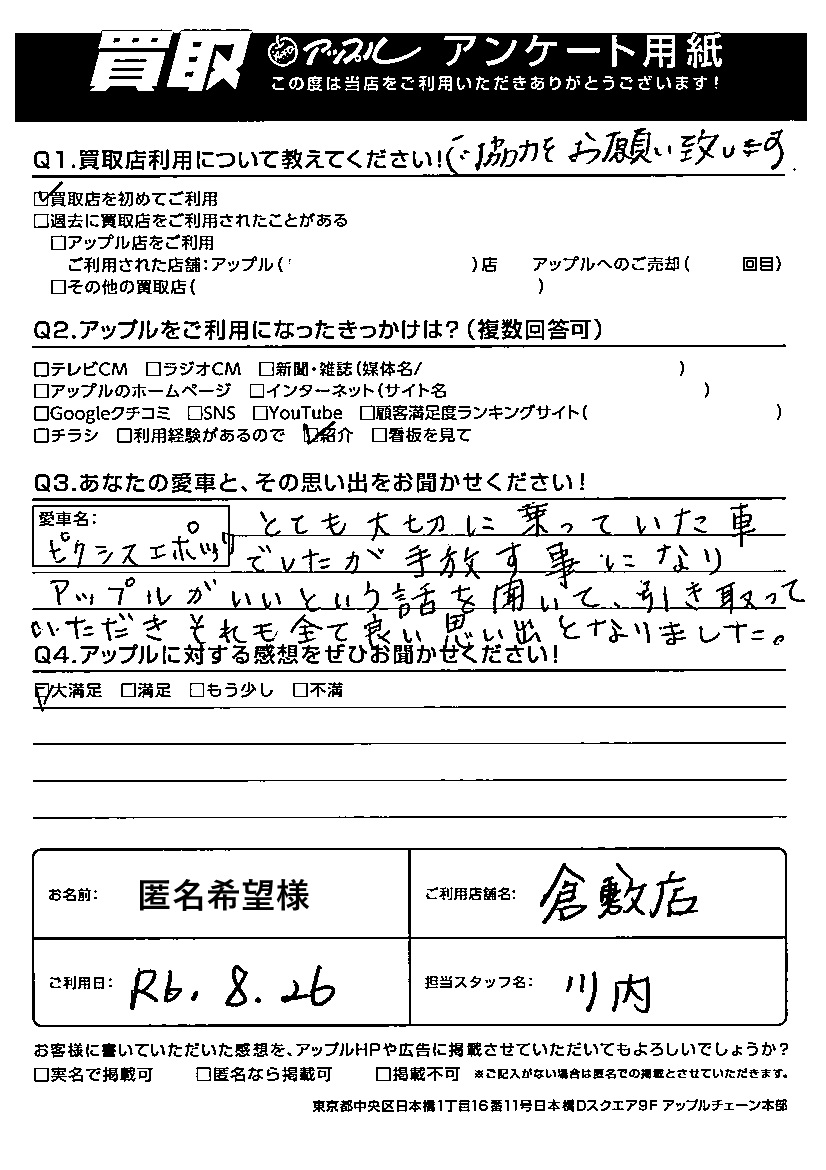 買取 アップル アンケート用紙
この度は当店をご利用いただきありがとうございます！
Q1.買取店利用について教えてください！(ご協力をお願い致します
☑買取店を初めてご利用
□過去に買取店をご利用されたことがある
□アップル店をご利用
ご利用された店舗：アップル（ ）店 アップルへのご売却（ 回目）
□その他の買取店（ ）
Q2.アップルをご利用になったきっかけは？（複数回答可）
□テレビCM □ラジオCM □新聞・雑誌（媒体名/ ）
□アップルのホームページ □インターネット（サイト名 ）
□Googleクチコミ □SNS □YouTube □顧客満足度ランキングサイト（ ）
□チラシ □利用経験があるので ☑紹介 □看板を見て
Q3.あなたの愛車と、その思い出をお聞かせください！
愛車名：
ピクシスエポック とても大切に乗っていた車
でしたが手放す事になり
アップルがいいという話を聞いて、引き取って
いただきそれも全て良い思い出となりました。
Q4.アップルに対する感想をぜひお聞かせください！
☑大満足 □満足 □もう少し □不満
お名前： 匿名希望様 ご利用店舗名： 倉敷店
ご利用日： R6.8.26 担当スタッフ名： 川内
お客様に書いていただいた感想を、アップルHPや広告に掲載させていただいてもよろしいでしょうか？
□実名で掲載可 □匿名なら掲載可 □掲載不可 ※ご記入がない場合は匿名での掲載とさせていただきます。
東京都中央区日本橋1丁目16番11号日本橋Dスクエア9F アップルチェーン本部